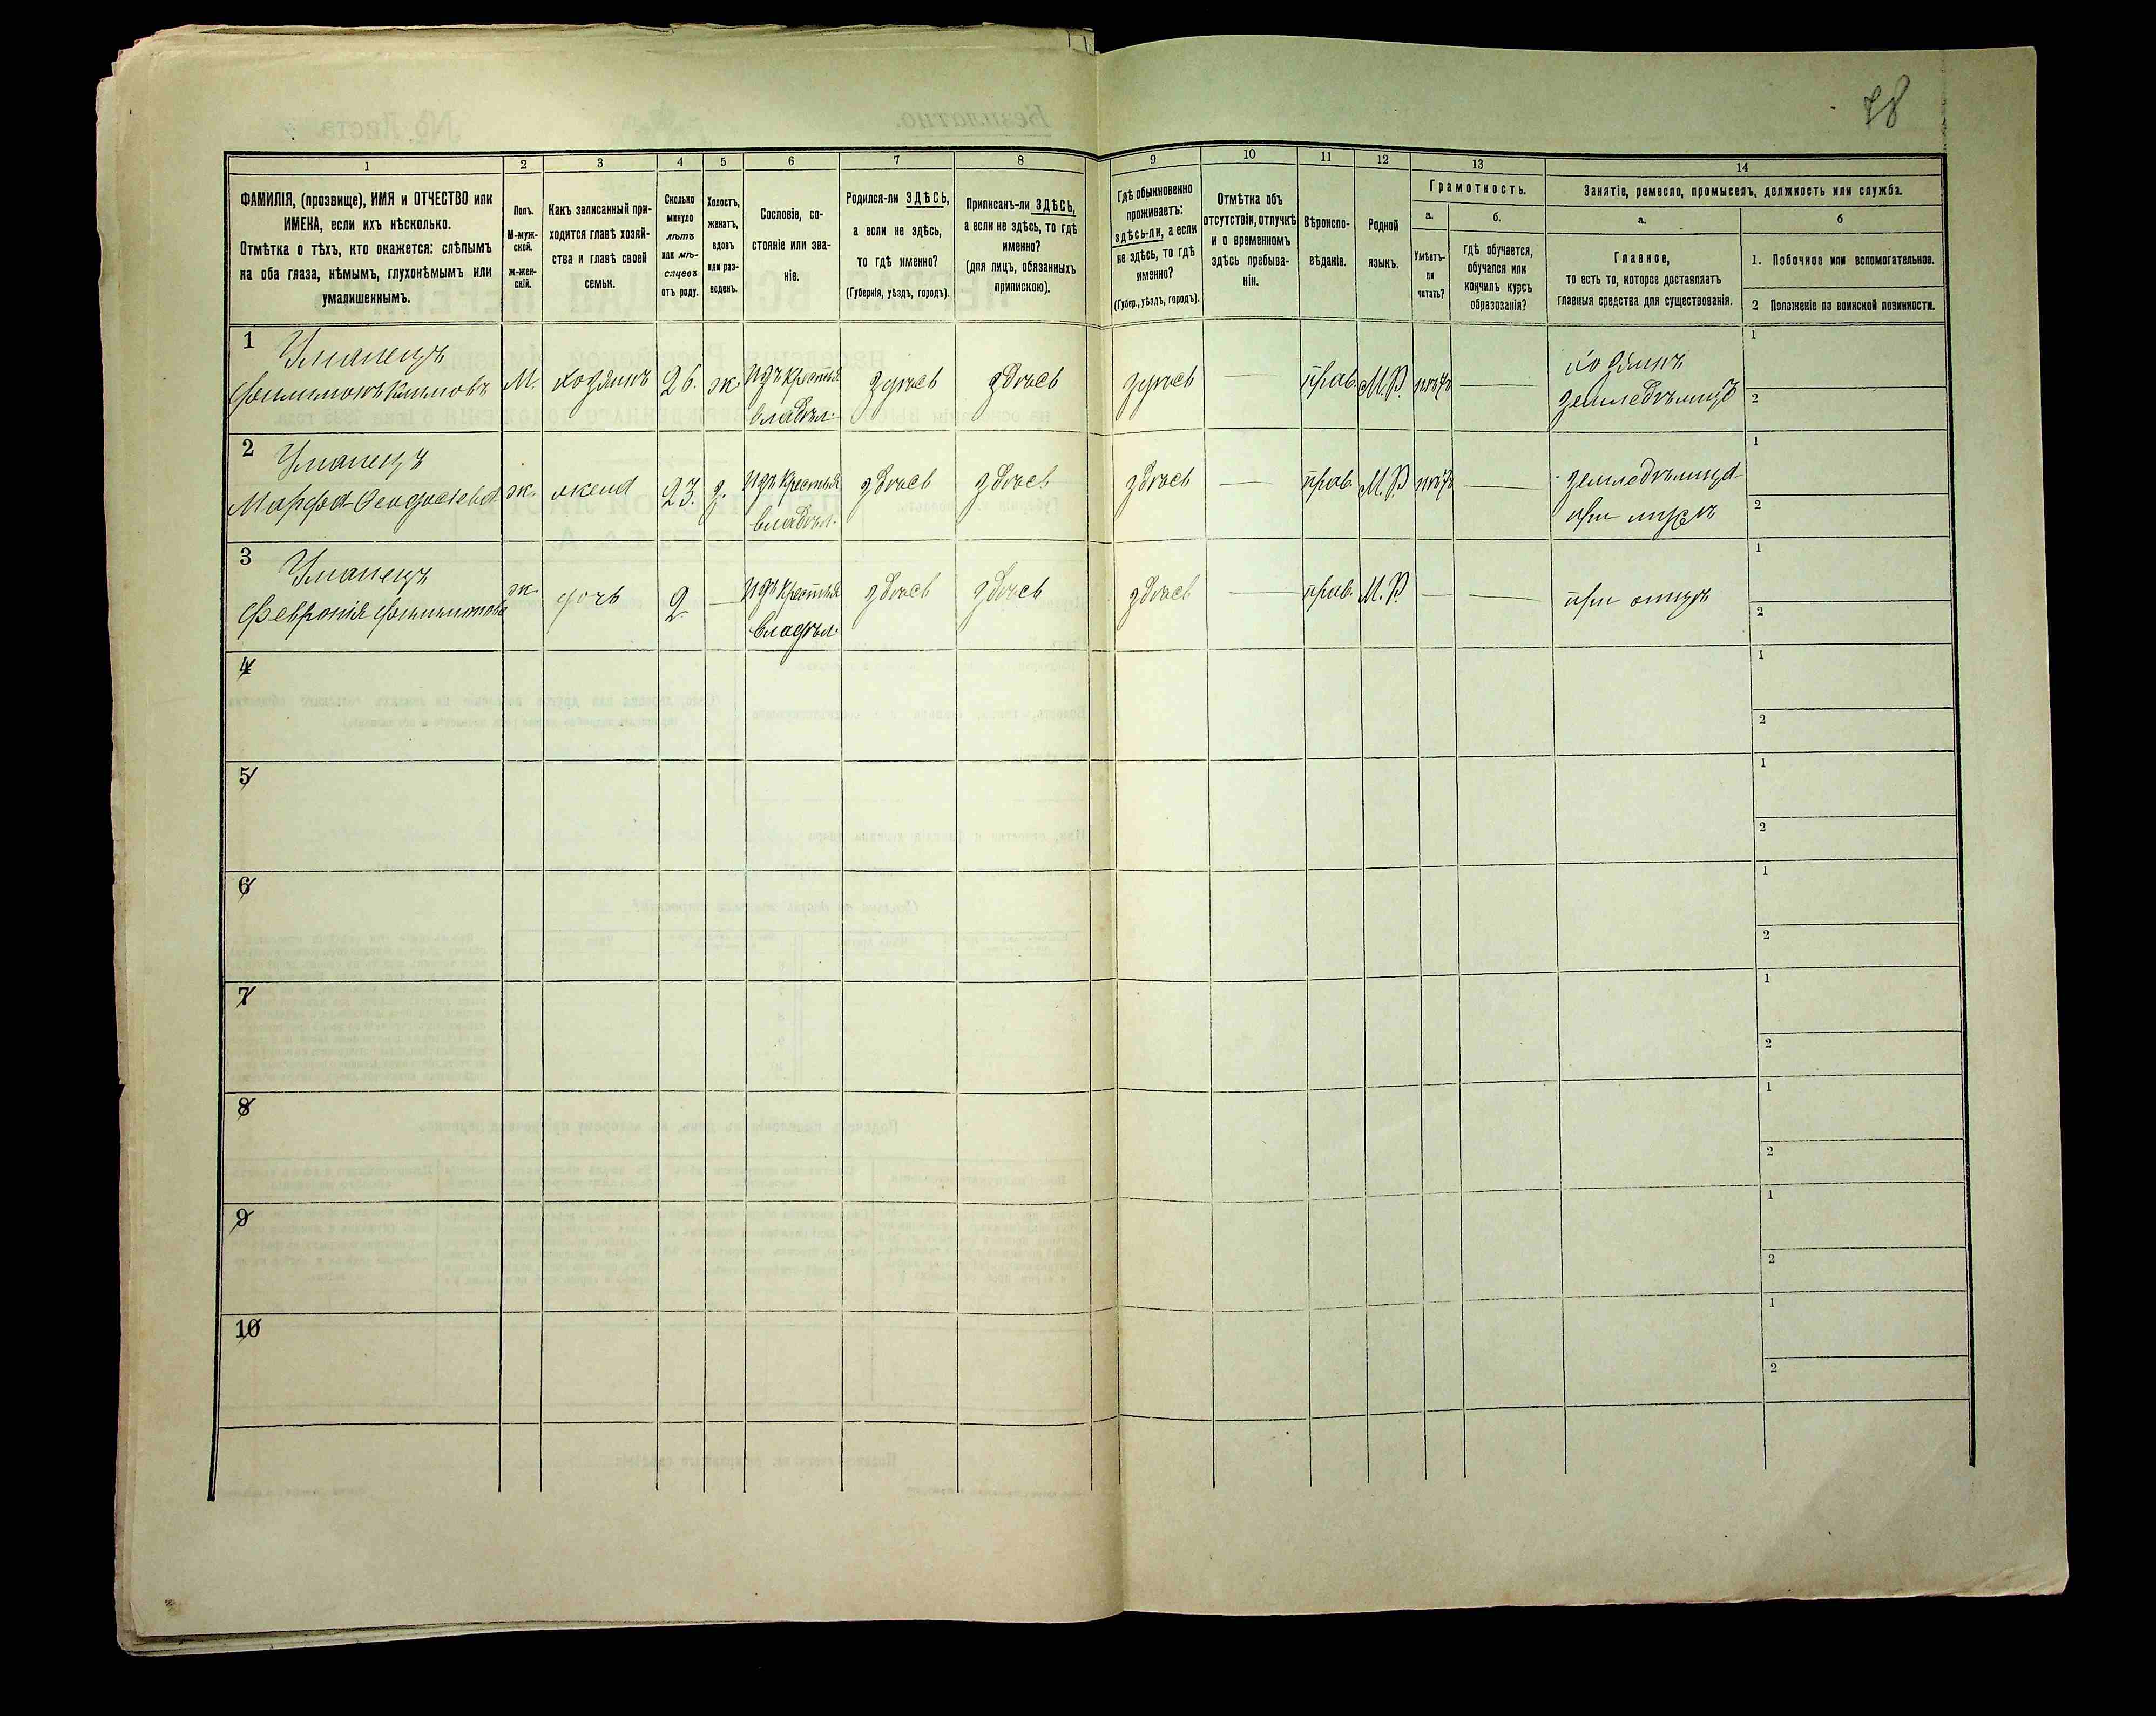 78
1
2
3
4
5
6
7
8
9
10
11
12
13
14
ФАМИЛІЯ, (прозвище), ИМЯ и ОТЧЕСТВО или
ИМЕНА, если ихъ нѣсколько.
Отмѣтка о тѣхъ, кто окажется: слѣпымъ
на оба глаза, нѣмымъ, глухонѣмымъ или
умалишеннымъ.
Полъ.
М-муж-
ской.
ж-жен-
скій.
Какъ записанный при-
ходится главѣ хозяй-
ства и главѣ своей
семьи.
Сколько
минуло
лѣтъ
или мѣ-
сяцевъ
отъ роду.
Холостъ,
женатъ,
вдовъ
или раз-
веденъ.
Сословіе, со-
стояніе или зва-
ніе.
Родился-ли ЗДѢСЬ,
а если не здѣсь,
то гдѣ именно?
(Губернія, уѣздъ, городъ).
Приписанъ-ли ЗДѢСЬ,
а если не здѣсь, то гдѣ
именно?
(для лицъ, обязанныхъ
припискою).
Гдѣ обыкновенно
проживаетъ:
здѣсь-ли, а если
не здѣсь, то гдѣ
именно?
(Губер., уѣздъ, городъ).
Отмѣтка объ
отсутствіи, отлучкѣ
и о временномъ
здѣсь пребыва-
ніи.
Вѣроиспо-
вѣданіе.
Родной
языкъ.
Грамотность.
а.
Умѣетъ-
ли
читать?
б.
Гдѣ обучается,
обучался или
кончилъ курсъ
образованія?
Занятіе, ремесло, промыселъ, должность или служба.
а.
Главное,
то есть то, которое доставляетъ
главныя средства для существованія.
б
1. Побочное или вспомогательное.
2 Положеніе по воинской повинности.
1 Уманецъ
Филимонъ Климовъ М. хозяинъ 26. ж. изъ крестья здѣсь здѣсь здѣсь — прав. М.Р. нѣтъ — хозяинъ
владѣл. земледѣлецъ
1
2
2 Уманецъ
Марфа Феодосіева ж. жена 23. з. изъ крестья здѣсь здѣсь здѣсь — прав. М.Р. нѣтъ — земледѣлица
владѣл. при мужѣ
1
2
3 Уманецъ
Февронія Филимонова ж. дочь 2. — изъ крестья здѣсь здѣсь здѣсь прав. М.Р. — — при отцѣ
владѣл.
1
2
4
1
2
5
1
2
6
1
2
7
1
2
8
1
2
9
1
2
10
1
2